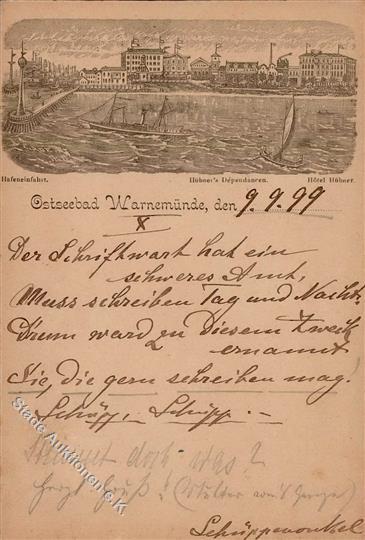 Hafeneinfahrt. Hübner's Dépendancen. Hôtel Hübner.
Ostseebad Warnemünde, den 9.9.99
X
Der Schriftwart hat ein
schweres Amt,
Muss schreiben Tag und Nacht.
Drum ward zu Diesem Zweck
ernannt
Sie, die gern schreiben mag!
Schüpp, Schüpp.—
doch was?
Herzl. Gruß!
Schüppenonkel
Stade Auktionen.de